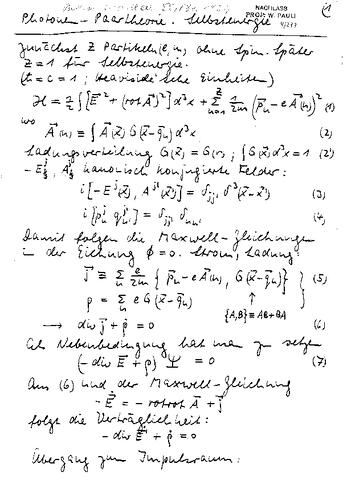 NACHLASS
PROF. W. PAULI
Photonen-Paartheorie. Selbstenergie
Zunächst Z Partikeln (e, m) ohne Spin. Später
Z = 1 für Selbstenergie.
(ħ = c = 1; Heaviside'sche Einheiten)
ℋ = ½ ∫ [E⃗² + (rot A⃗)²] d³x + Σ 1/2m (p⃗ₙ − e A⃗(n))² (1)
wo
A⃗(n) ≡ ∫ A⃗(x⃗) G(x⃗ − q⃗ₙ) d³x (2)
Ladungsverteilung G(x⃗) = G(r); ∫ G(x⃗) d³x = 1 (2')
kanonisch konjugierte Felder:
i [−Eʲ(x⃗), Aʲ'(x⃗')] = δⱼⱼ' δ³(x⃗ − x⃗') (3)
i [pₙʲ qₙ'ʲ'] = δⱼⱼ' δₙₙ' (4)
Damit folgen die Maxwell-Gleichungen
in der Eichung ϕ = 0. Strom, Ladung:
j⃗ ≡ Σₙ e/2m {p⃗ₙ − e A⃗(n), G(x⃗ − q⃗ₙ)} (5)
ρ = Σₙ e G(x⃗ − q⃗ₙ) ↑
{A,B} ≡ AB + BA
→ div j⃗ + ρ̇ = 0 (6)
Als Nebenbedingung hat man zu setzen
(− div E⃗ + ρ) Ψ = 0 (7)
Aus (6) und der Maxwell-Gleichung
− E⃗̇ = − rot rot A⃗ + j⃗
folgt die Verträglichkeit:
− div E⃗̇ + ρ̇ = 0
Übergang zum Impulsraum: